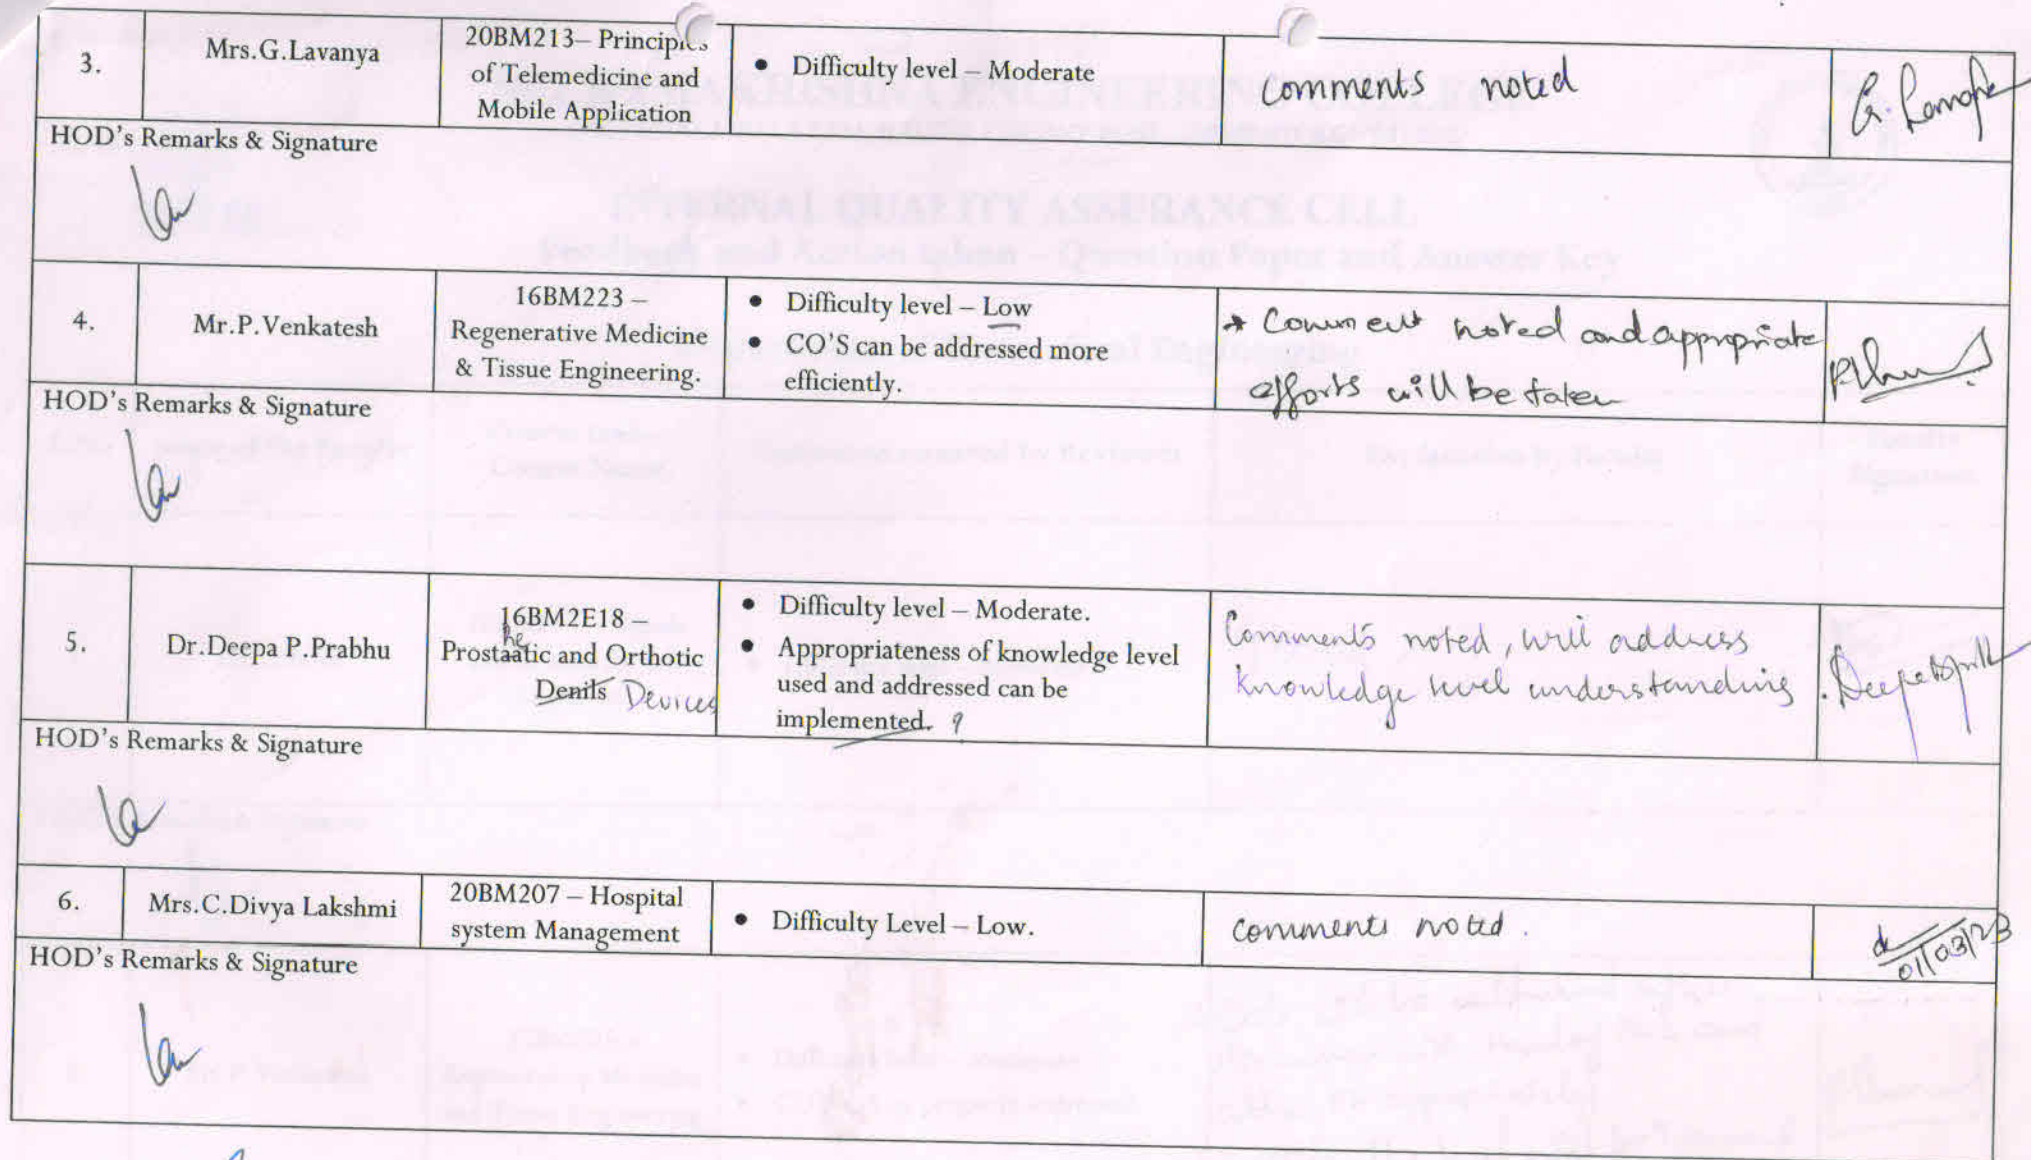 3.
Mrs.G.Lavanya
20BM213– Principles
of Telemedicine and
Mobile Application
• Difficulty level – Moderate
Comments noted
HOD's Remarks & Signature
4.
Mr.P.Venkatesh
16BM223 –
Regenerative Medicine
& Tissue Engineering.
• Difficulty level – Low
• CO'S can be addressed more
efficiently.
* Comment noted and appropriate
efforts will be taken
HOD's Remarks & Signature
5.
Dr.Deepa P.Prabhu
16BM2E18 –
he
Prostaatic and Orthotic
Denils Devices
• Difficulty level – Moderate.
• Appropriateness of knowledge level
used and addressed can be
implemented. ?
Comments noted, will address
knowledge level understanding
HOD's Remarks & Signature
6.
Mrs.C.Divya Lakshmi
20BM207 – Hospital
system Management
• Difficulty Level – Low.
comments noted.
01/03/23
HOD's Remarks & Signature
INTERNAL QUALITY ASSURANCE CELL
Feedback and Action taken – Question Paper and Answer Key